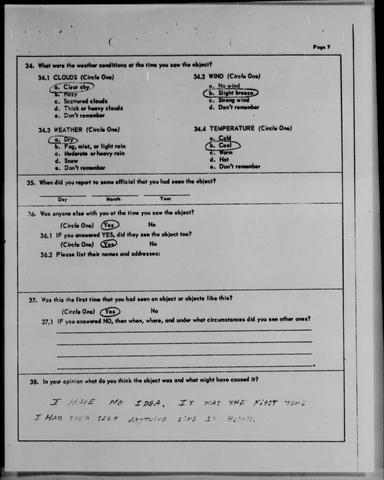 Page 7
34. What were the weather conditions at the time you saw the object?
34.1 CLOUDS (Circle One) 34.2 WIND (Circle One)
a. Clear sky a. No wind
b. Hazy b. Slight breeze
c. Scattered clouds c. Strong wind
d. Thick or heavy clouds d. Don't remember
e. Don't remember
34.3 WEATHER (Circle One) 34.4 TEMPERATURE (Circle One)
a. Dry a. Cold
b. Fog, mist, or light rain b. Cool
c. Moderate or heavy rain c. Warm
d. Snow d. Hot
e. Don't remember e. Don't remember
35. When did you report to some official that you had seen the object?
Day Month Year
36. Was anyone else with you at the time you saw the object?
(Circle One) Yes No
36.1 IF you answered YES, did they see the object too?
(Circle One) Yes No
36.2 Please list their names and addresses:
37. Was this the first time that you had seen an object or objects like this?
(Circle One) Yes No
37.1 IF you answered NO, then when, where, and under what circumstances did you see other ones?
38. In your opinion what do you think the object was and what might have caused it?
I HAVE NO IDEA. IT WAS THE FIRST TIME
I HAD EVER SEEN ANYTHING LIKE IT